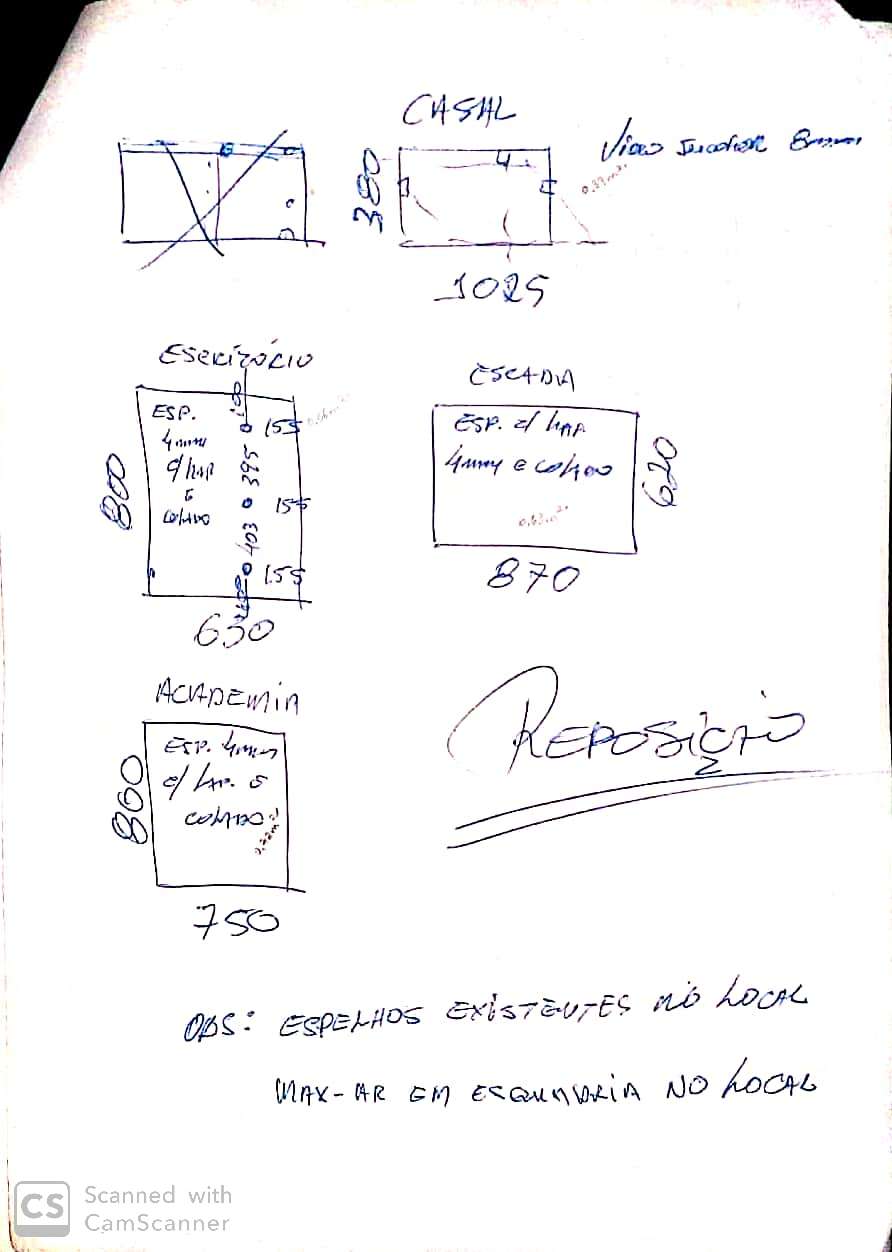 CASAL
Vidro Incolor 8mm
380
4
0.39m²
1025
ESCRITÓRIO
ESP.
4mm
c/ LAP
E
COLADO
800
100
155
395
155
403
155
630
ESCADA
ESP. c/ LAP
4mm e COLADO
620
870
ACADEMIA
ESP. 4mm
c/ LAP. E
COLADO
860
750
REPOSIÇÃO
OBS: ESPELHOS EXISTENTES NO LOCAL
MAX-AR EM ESQUADRIA NO LOCAL
CS Scanned with
CamScanner